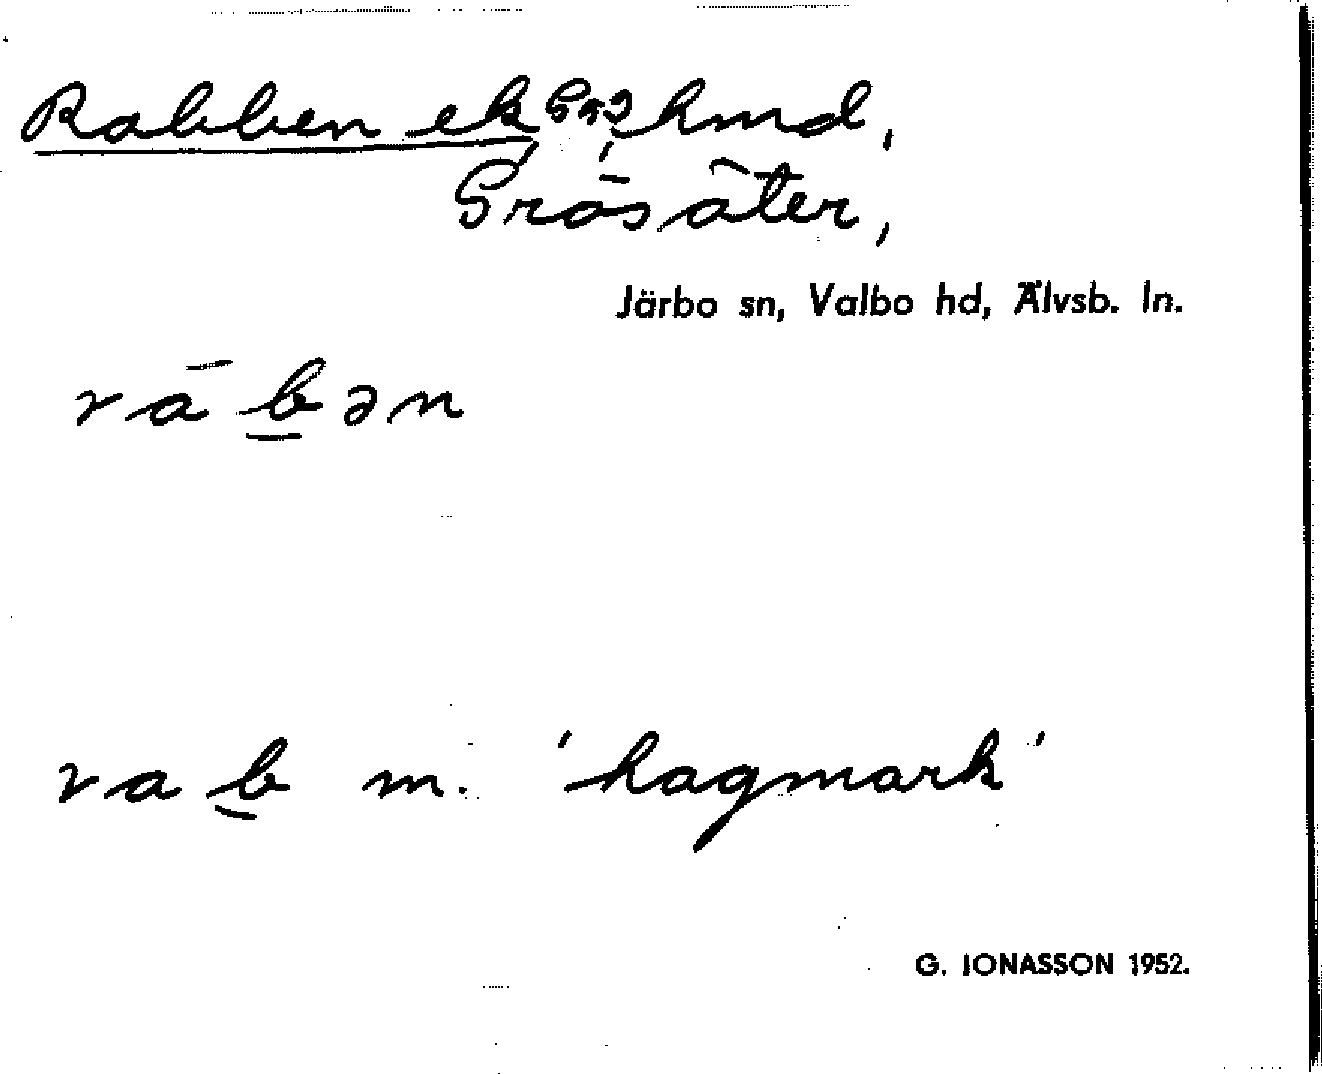 Rabben ek hmd,
Gräsäter,
Järbo sn, Valbo hd, Älvsb. ln.
rābən
rab m. 'hagmark'
G. JONASSON 1952.